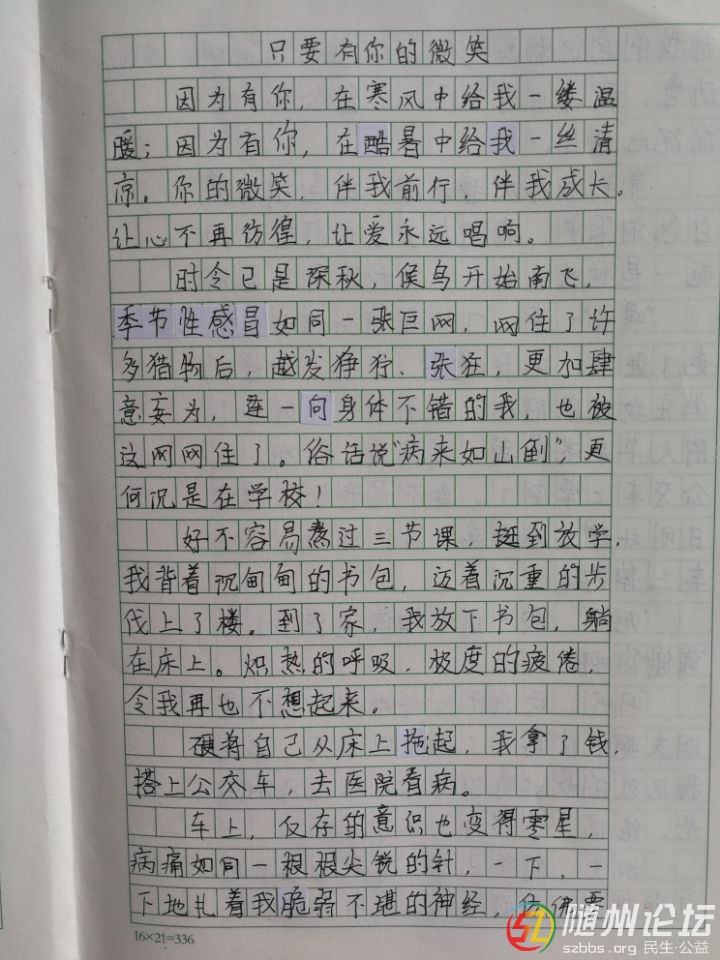 只要有你的微笑
因为有你，在寒风中给我一缕温
暖；因为有你，在酷暑中给我一丝清
凉。你的微笑，伴我前行，伴我成长。
让心不再彷徨，让爱永远唱响。
时令已是深秋，候鸟开始南飞，
季节性感冒如同一张巨网，网住了许
多猎物后，越发狰狞、张狂，更加肆
意妄为，连一向身体不错的我，也被
这网网住了。俗话说"病来如山倒"，更
何况是在学校！
好不容易熬过三节课，挺到放学，
我背着沉甸甸的书包，迈着沉重的步
伐上了楼。到了家，我放下书包，躺
在床上。炽热的呼吸，极度的疲倦，
令我再也不想起来。
硬将自己从床上拖起，我拿了钱，
搭上公交车，去医院看病。
车上，仅存的意识也变得零星，
病痛如同一根根尖锐的针，一下，一
下地扎着我脆弱不堪的神经，仿佛要
16×21=336
随州论坛
szbbs.org 民生·公益